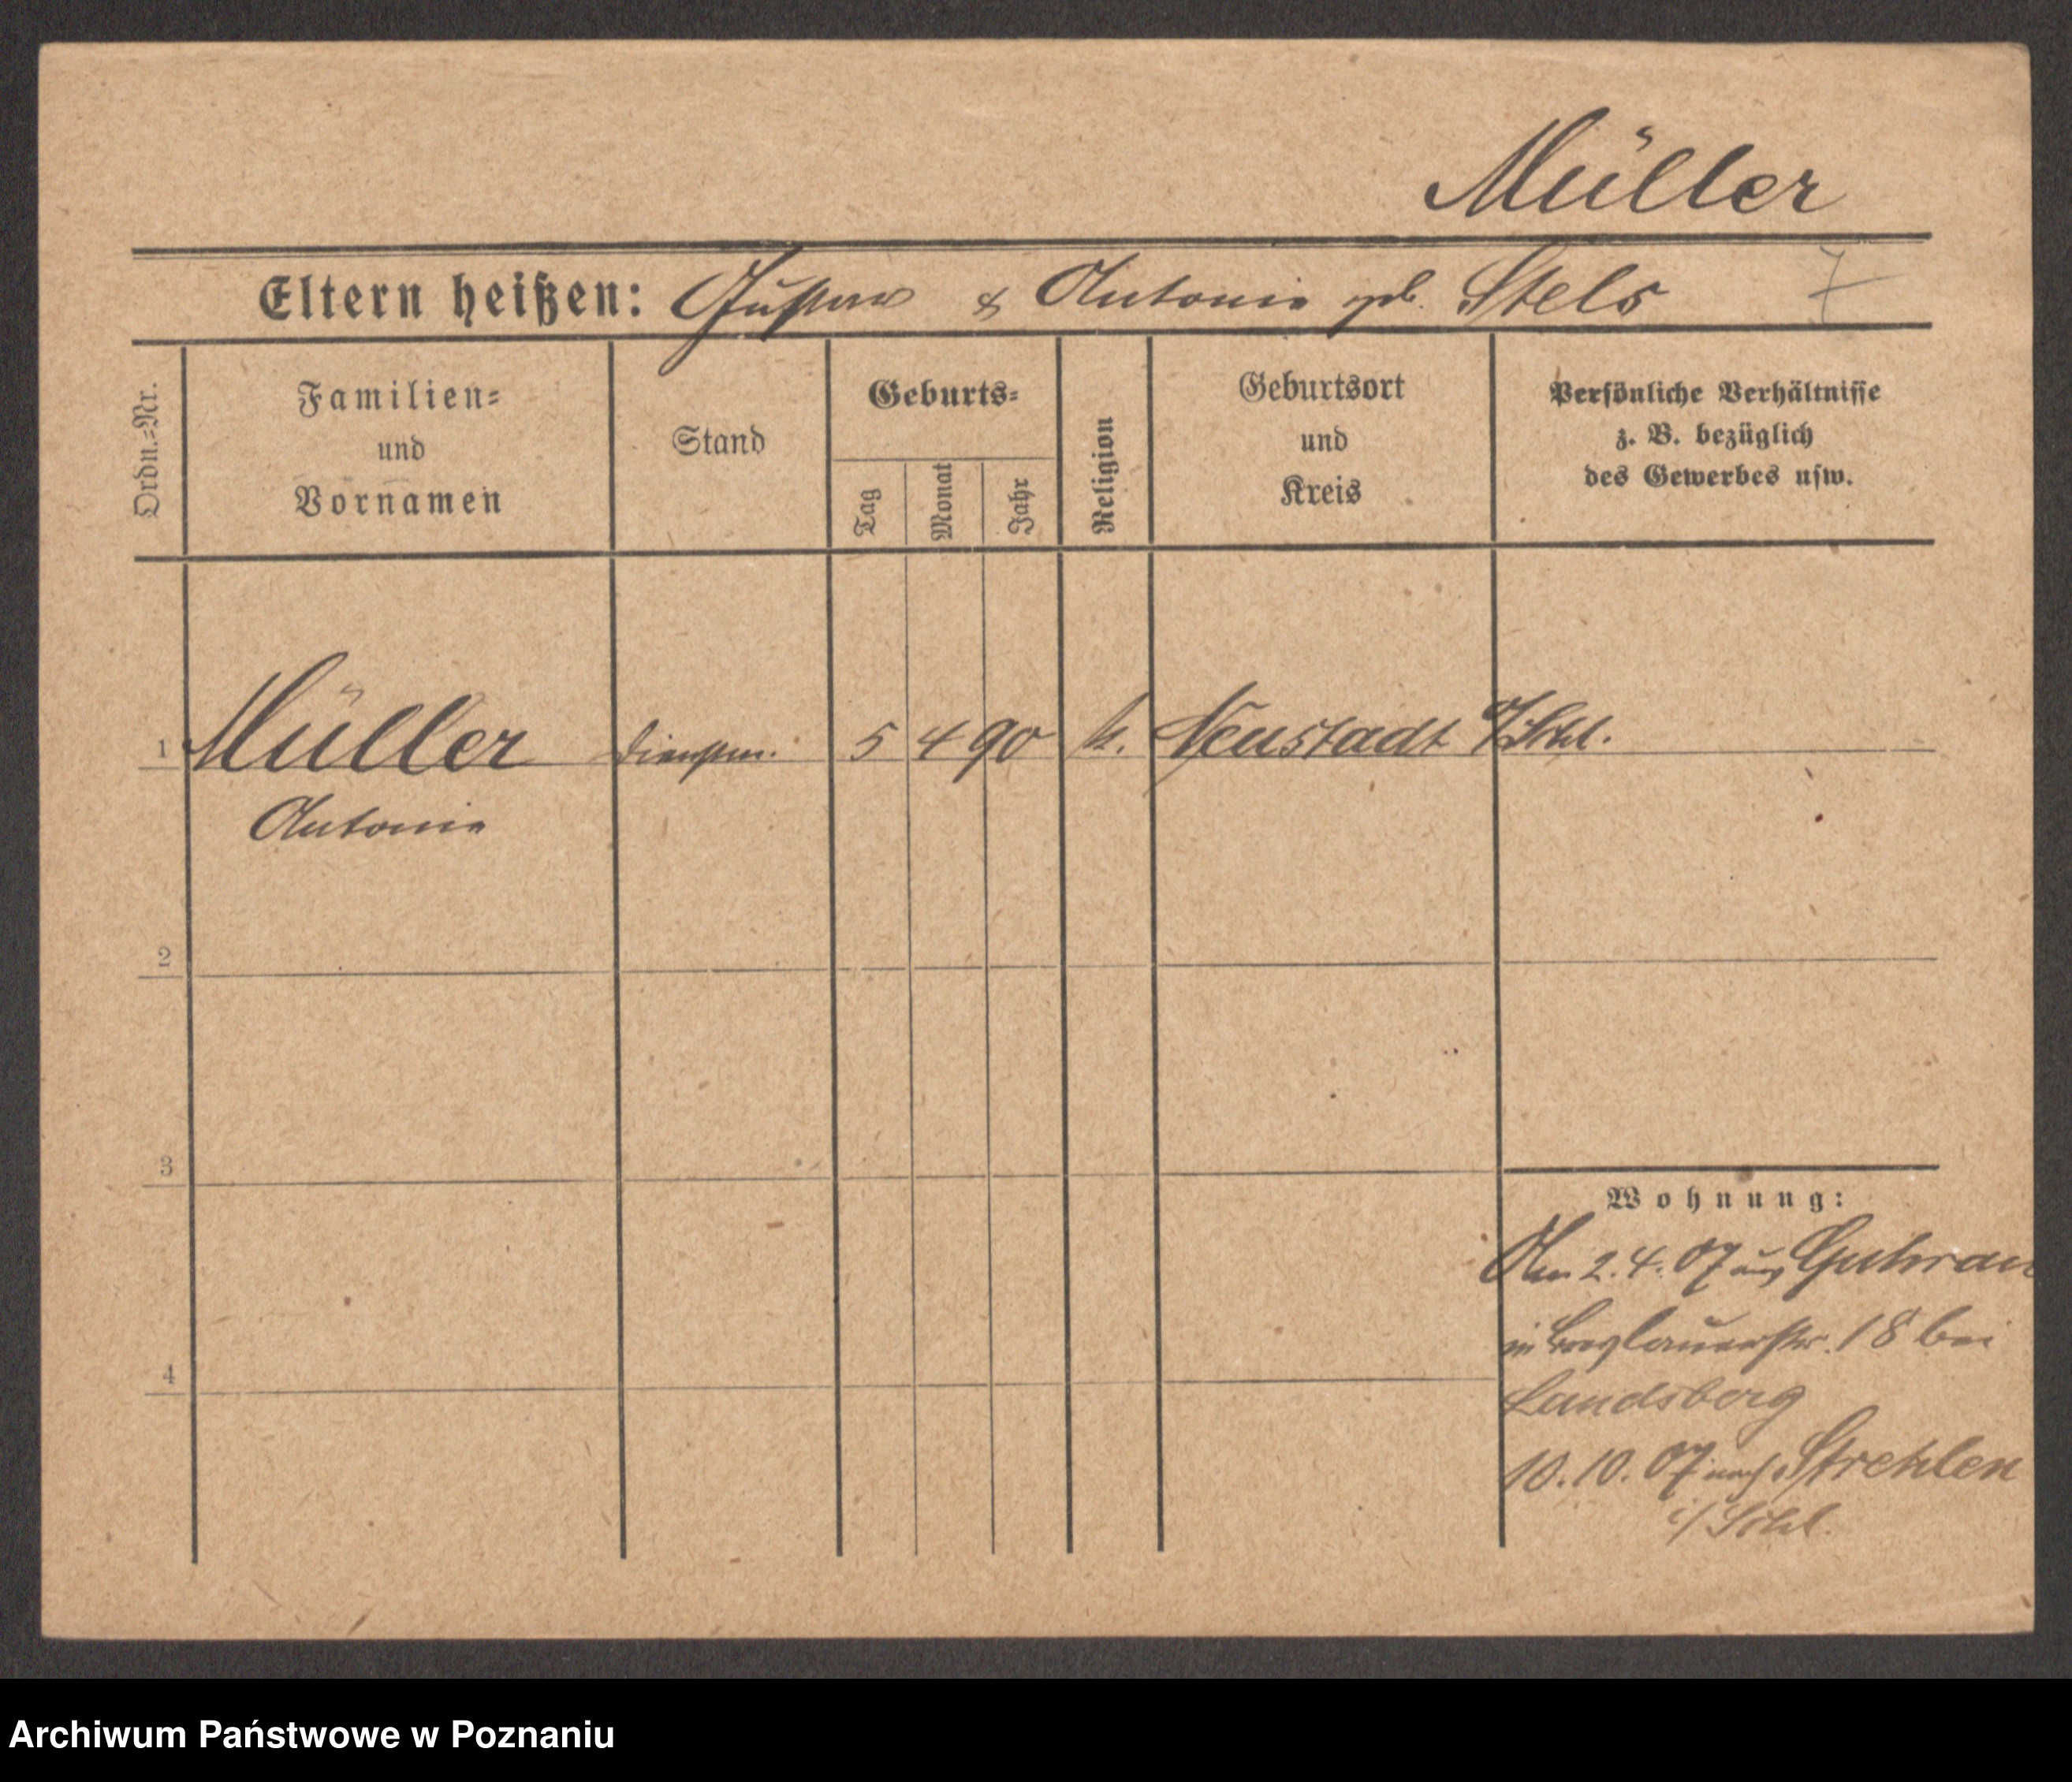 Müller
Eltern heißen: Gustav & Antonie geb. Stels 7
Ordn.=Nr.
Familien=
und
Vornamen
Stand
Geburts=
Tag
Monat
Jahr
Religion
Geburtsort
und
Kreis
Persönliche Verhältnisse
z. B. bezüglich
des Gewerbes usw.
1 Müller 5 4 90 k. Neustadt o/Schl.
Antonie
2
3
4
Wohnung:
Am 2.4.07 aus Guhrau
in Breslauerstr. 18 bei
Landsberg
10.10.07 nach Strehlen
i/Schl.
Archiwum Państwowe w Poznaniu